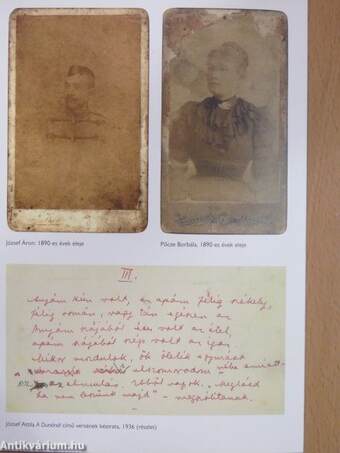 József Áron, 1890-es évek eleje
Pőcze Borbála, 1890-es évek eleje
III.
Anyám kún volt, az apám félig székely,
félig román, vagy tán egészen az.
Anyám szájából édes volt az étel,
apám szájából szép volt az igaz.
Mikor mozdulok, ők ölelik egymást.
elszomorodom néha emiatt –
ez az elmulás. Ebből vagyok. „Meglásd
ha nem leszünk majd" – megszólítanak.
József Attila A Dunánál című versének kézirata, 1936 (részlet)
Antikvárium.hu